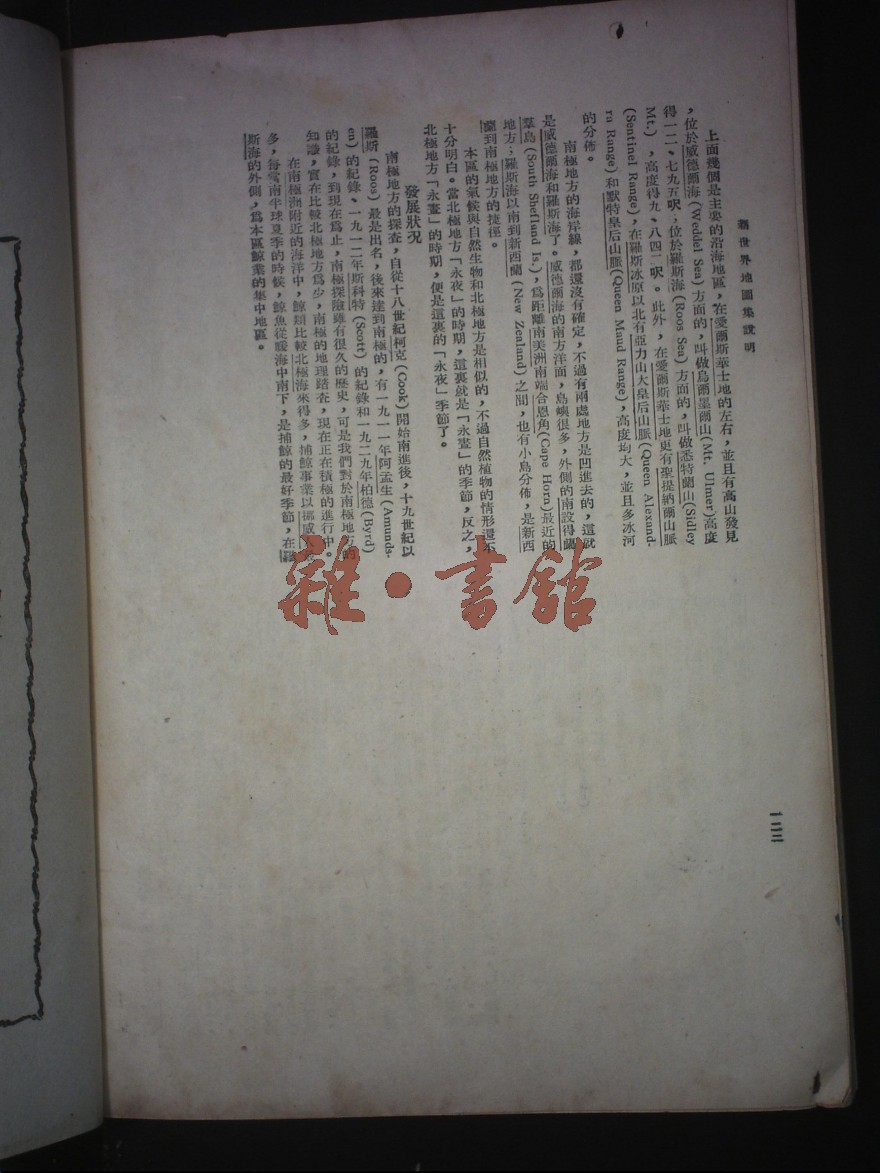 新世界地圖集說明
上面幾個是主要的沿海地區，在愛爾斯華士地的左右，並且有高山發見
，位於威德爾海(Weddel Sea)方面的，叫做烏爾墨爾山(Mt. Ulmer)高度
得一二、七九五呎；位於羅斯海(Roos Sea)方面的，叫做悉特蘭山(Sidley
Mt.)，高度得九、八四二呎。此外，在愛爾斯華士地更有聖提納爾山脈
(Sentinel Range)，在羅斯冰原以北有亞力山大皇后山脈(Queen Alexand-
ra Range)和默特皇后山脈(Queen Maud Range)，高度均大，並且多冰河
的分佈。
南極地方的海岸線，都還沒有確定，不過有兩處地方是凹進去的，這就
是威德爾海和羅斯海了。威德爾海的南方洋面，島嶼很多，外側的南設得蘭
羣島(South Shetland Is.)，爲距離南美洲南端合恩角(Cape Horn)最近的
地方；羅斯海以南到新西蘭(New Zealand)之間，也有小島分佈，是新西
蘭到南極地方的捷徑。
本區的氣候與自然生物和北極地方是相似的，不過自然植物的情形還不
十分明白。當北極地方「永夜」的時期，這裏就是「永晝」的季節，反之，
北極地方「永晝」的時期，便是這裏的「永夜」季節了。
發展狀況
南極地方的探查，自從十八世紀柯克(Cook)開始南進後，十九世紀以
羅斯(Roos)最是出名，後來達到南極的，有一九一一年阿孟生(Amunds-
en)的紀錄、一九一二年斯科特(Scott)的紀錄和一九二九年柏德(Byrd)
的紀錄，到現在爲止，南極探險雖有很久的歷史，可是我們對於南極地方的
知識，實在比較北極地方爲少，南極的地理踏查，現在正在積極的進行中。
在南極洲附近的海洋中，鯨類比較北極海來得多，捕鯨事業以挪威人
多，每當南半球夏季的時候，鯨魚從暖海中南下，是捕鯨的最好季節，在羅
斯海的外側，爲本區鯨業的集中地區。
一二二
雜·書館